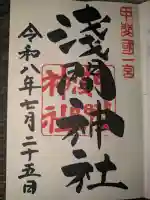 甲斐國一宮
浅間神社
令和八年七月二十五日